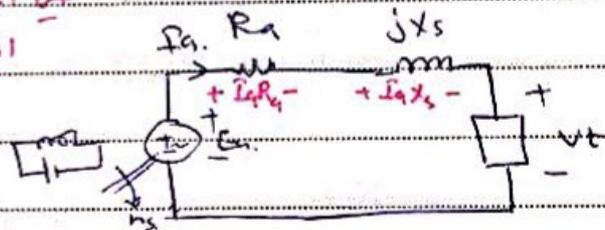 Ia. Ra jXs
+ IaRa - + IaXs - +
+ Ea. Vt
- -
ns